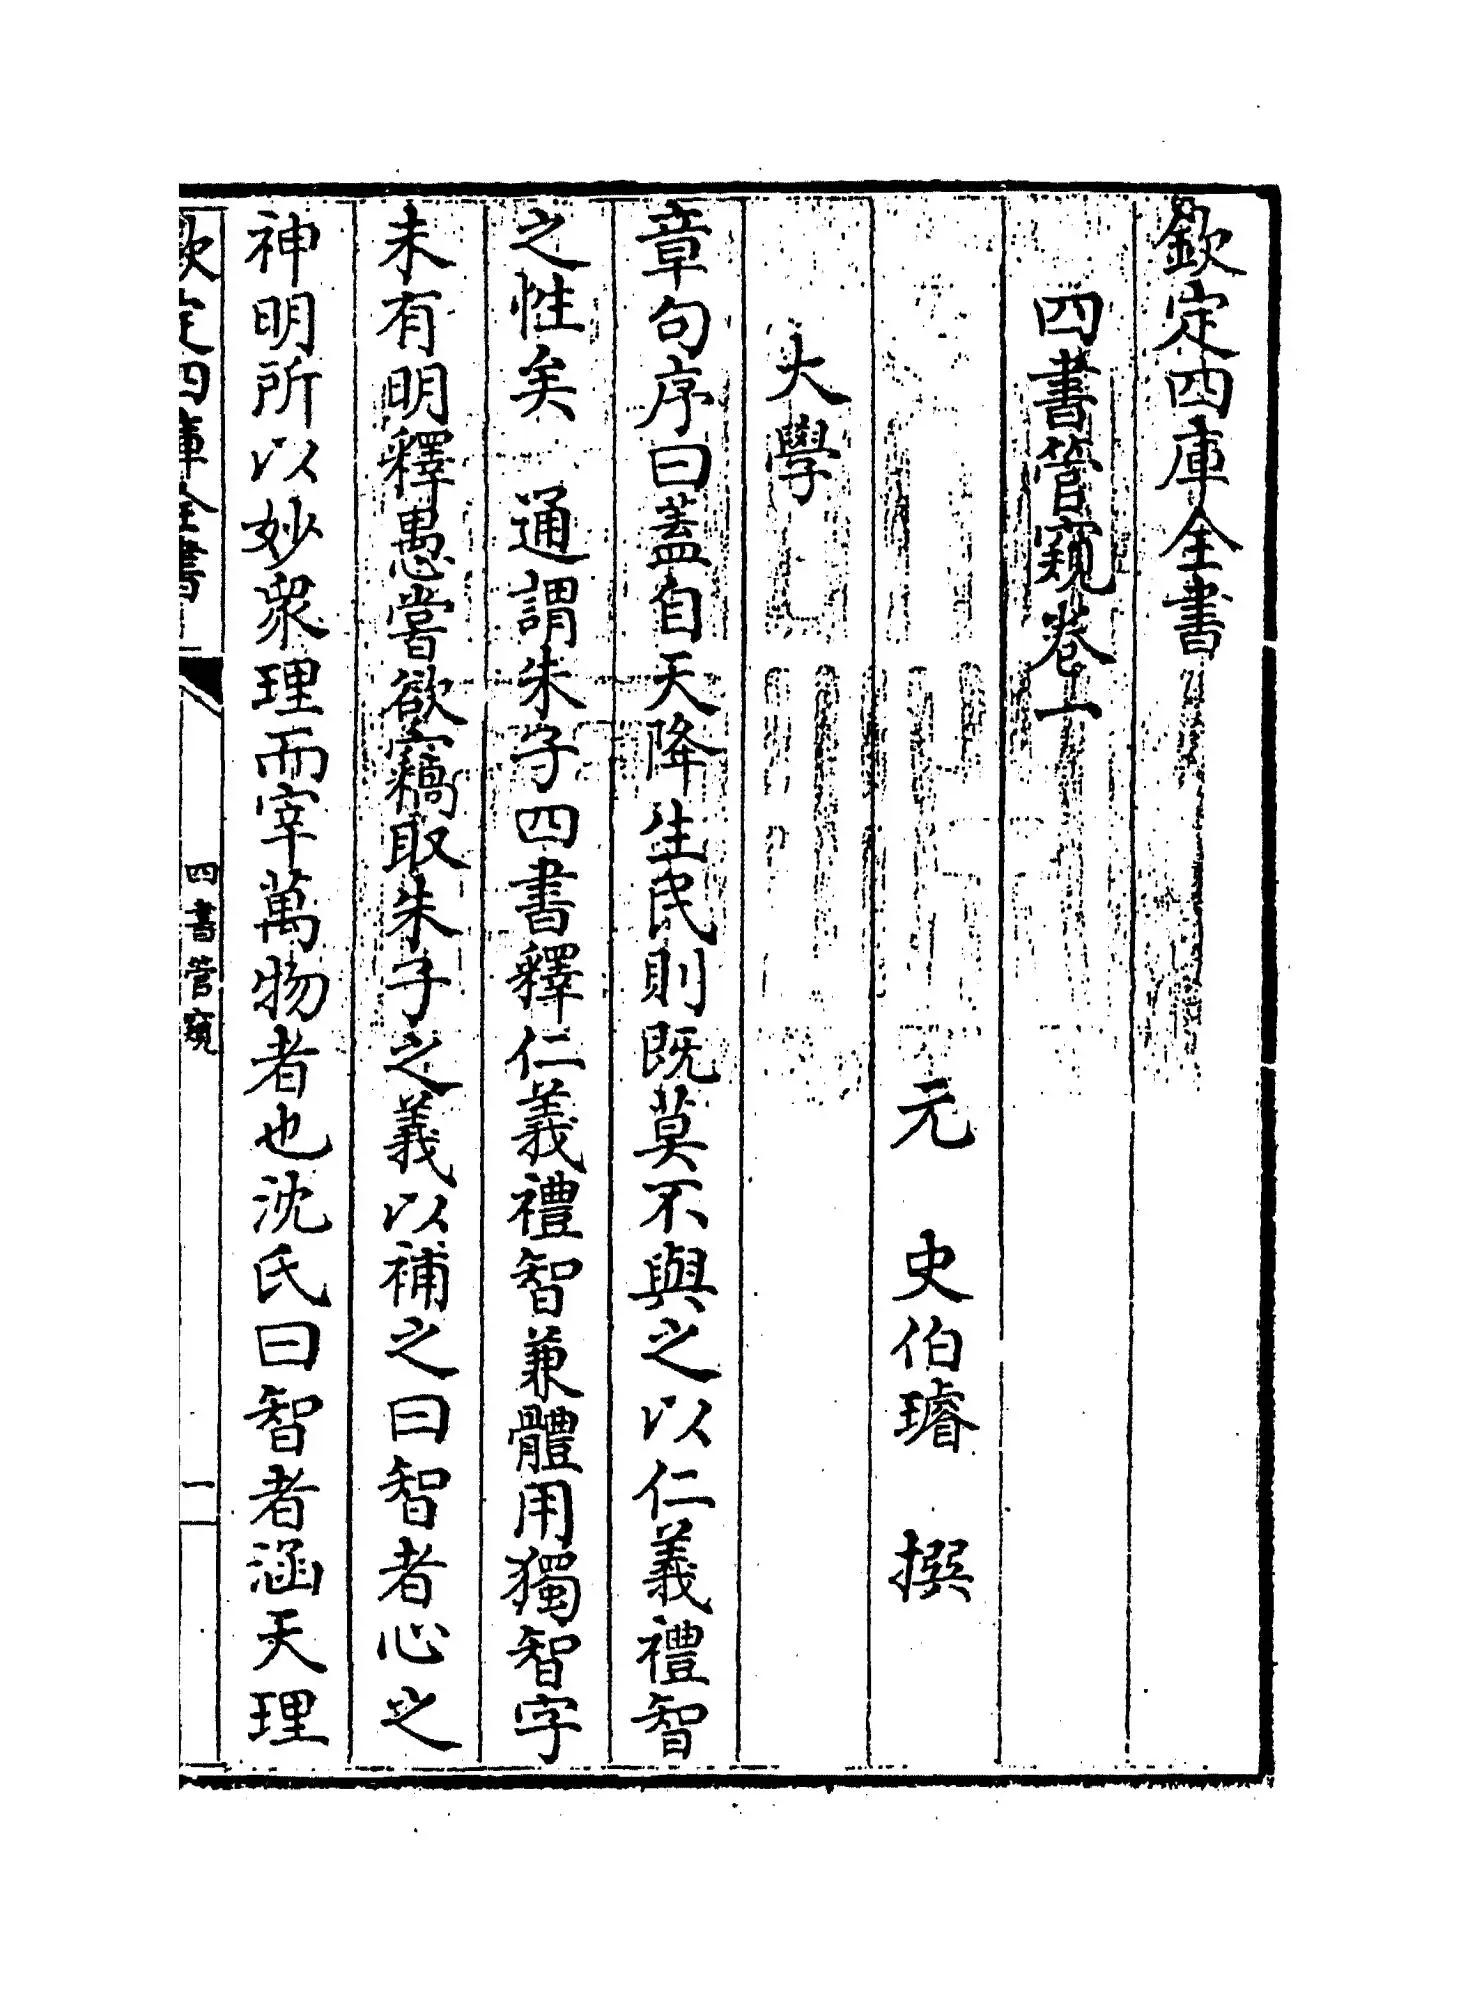 欽定四庫全書
四書管窺卷一
元 史伯璿 撰
大學
章句序曰蓋自天降生民則既莫不與之以仁義禮智
之性矣 通謂朱子四書釋仁義禮智兼體用獨智字
未有明釋愚嘗欲竊取朱子之義以補之曰智者心之
神明所以妙衆理而宰萬物者也沈氏曰智者涵天理
欽定四庫全書
四書管窺
一